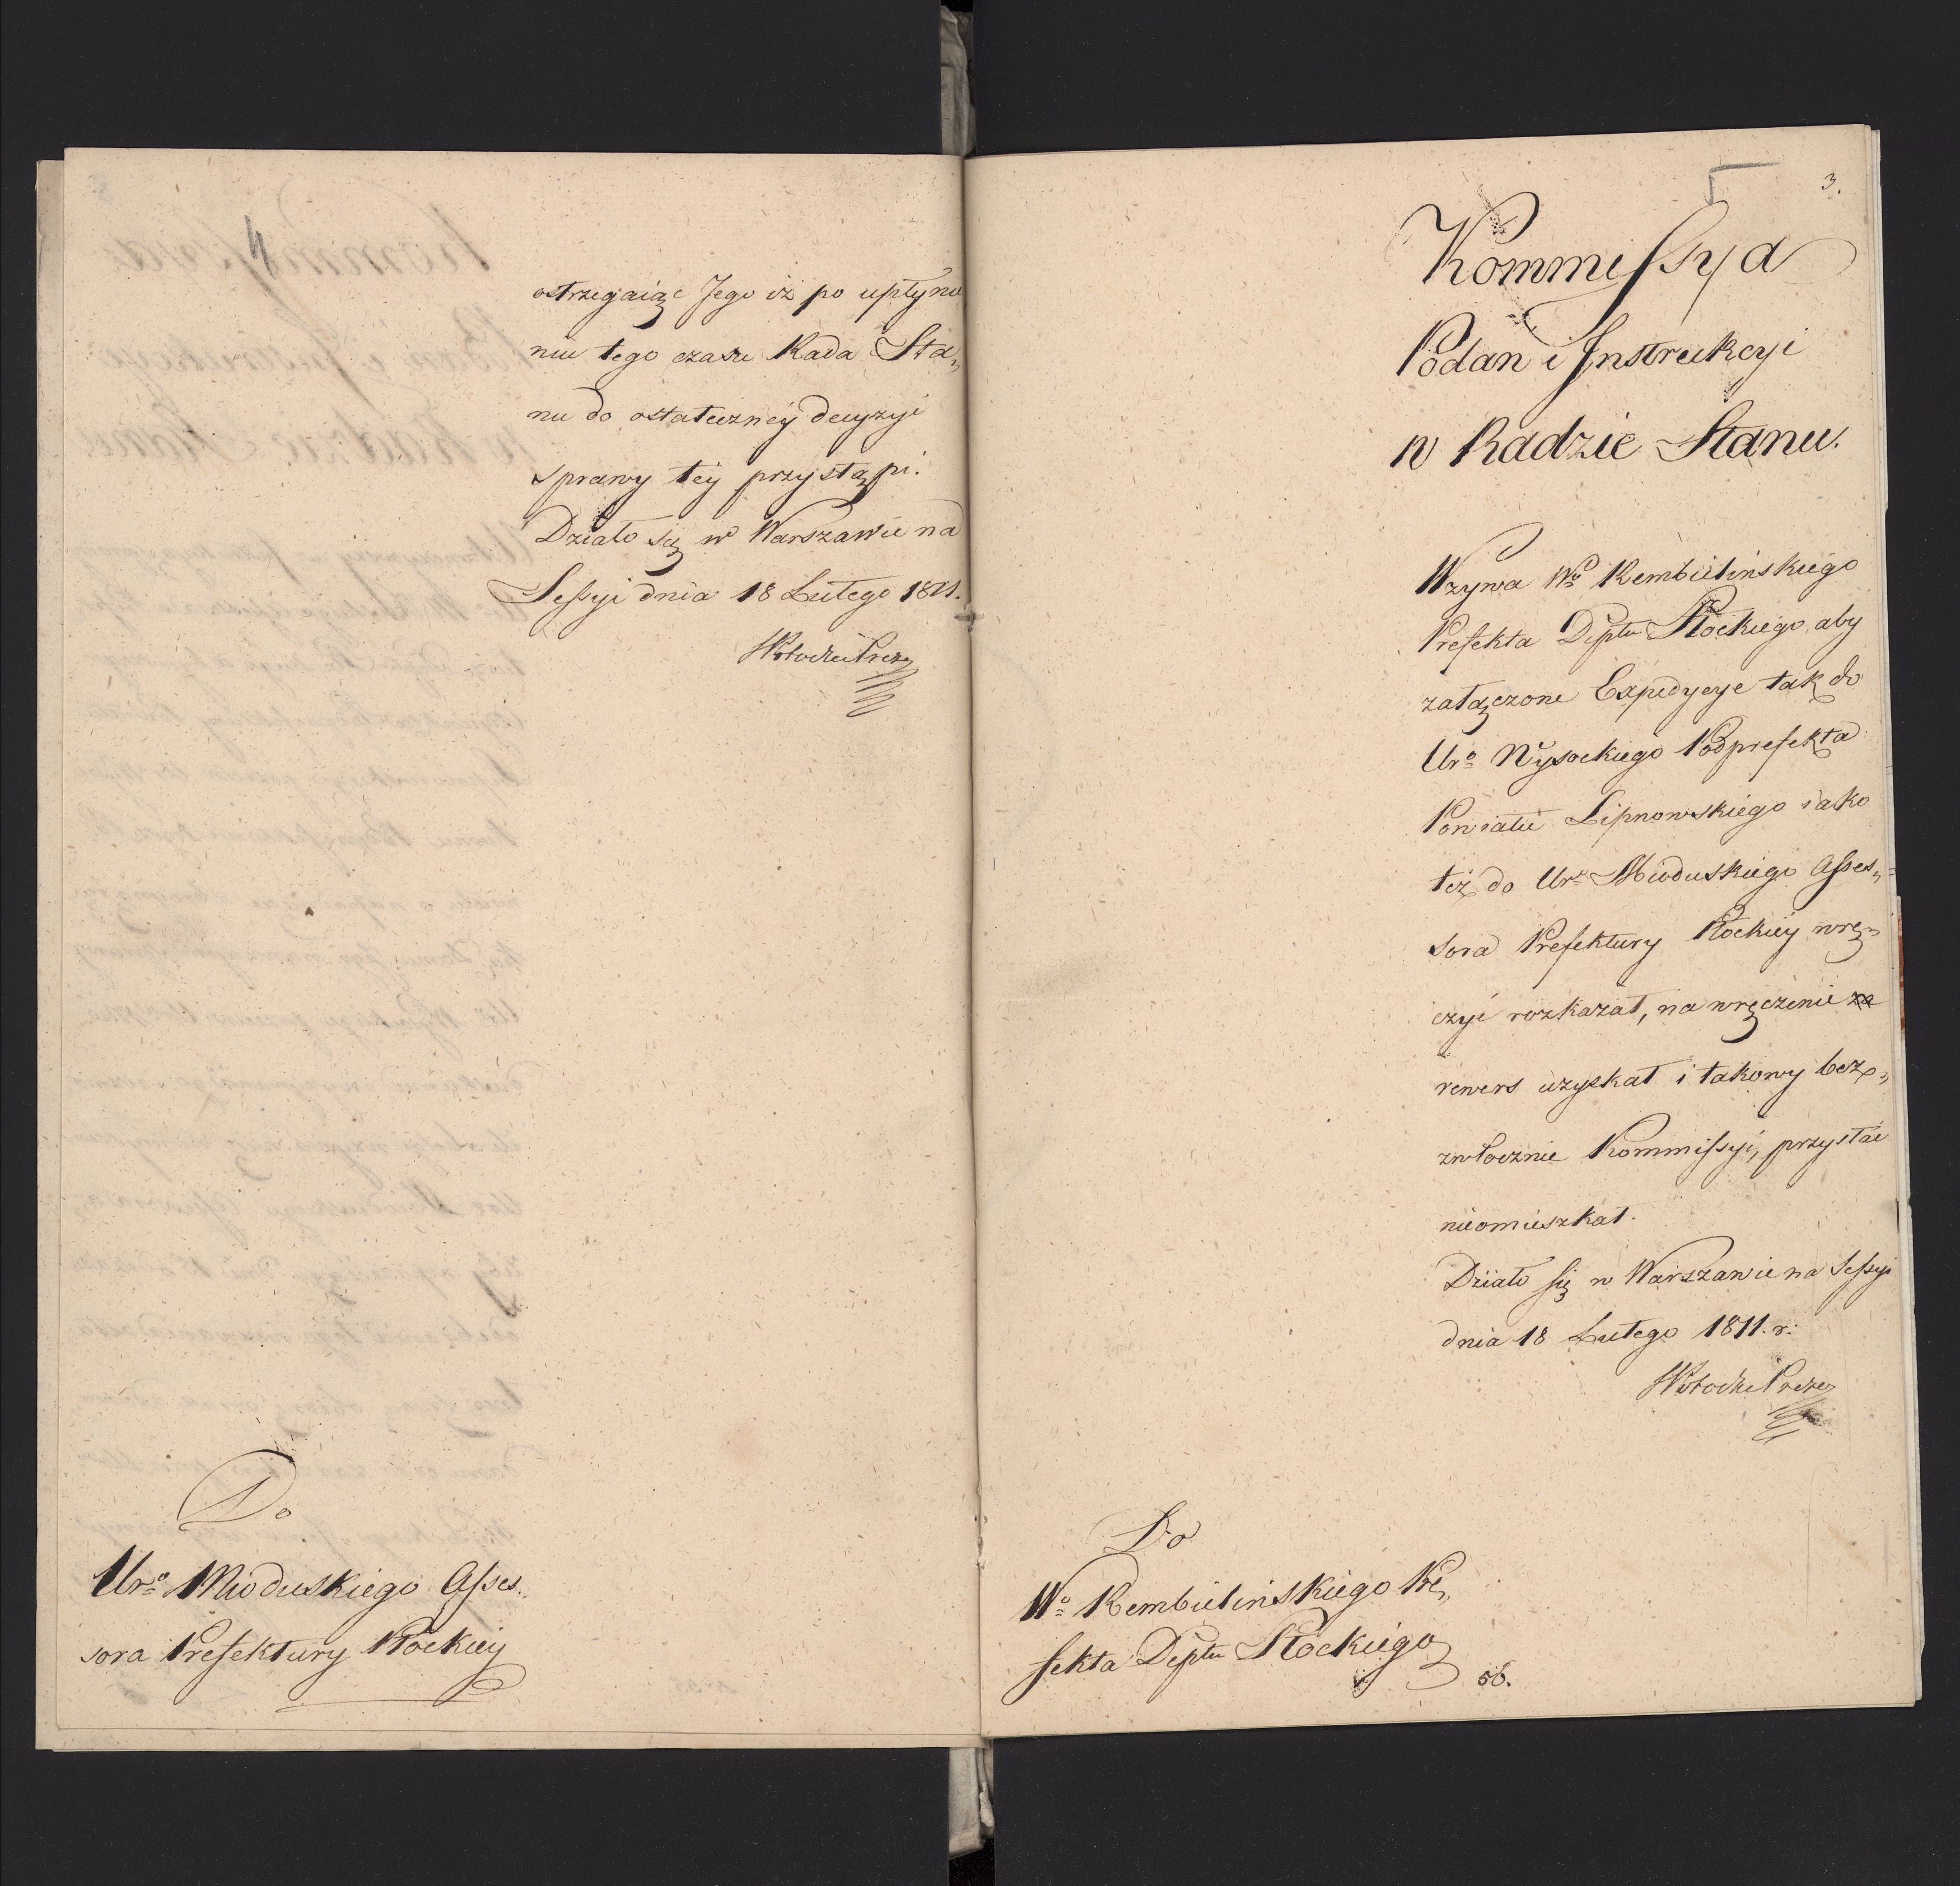 4
ostrzegaiąc Jego iż po upłynie
niu tego czasu Rada Sta„
nu do ostateczney decyzyi
sprawy tey przystąpi.
Działo się w Warszawie na
Sessyi dnia 18 Lutego 1811.
Do
Uro Mioduskiego Asses„
sora Prefektury Płockiey
5
3.
Kommissya
Podań i Instrukcyi
w Radzie Stanu.
Wzywa Wo Rembielińskiego
Prefekta Deptu Płockiego, aby
załączone Expedycye tak do
Uro Wysockiego Podprefekta
Powiatu Lipnowskiego iako
też do Uro Mioduskiego Asses„
sora Prefektury Płockiey wrę„
czyć rozkazał, na wręczenie
rewers uzyskał i takowy bez„
zwłocznie Kommissyi, przysłać
nieomieszkał.
Działo się w Warszawie na Sessyi
dnia 18 Lutego 1811. r:
Do
Wo Rembielińskiego Pre„
fekta Deptu Płockiego
56.